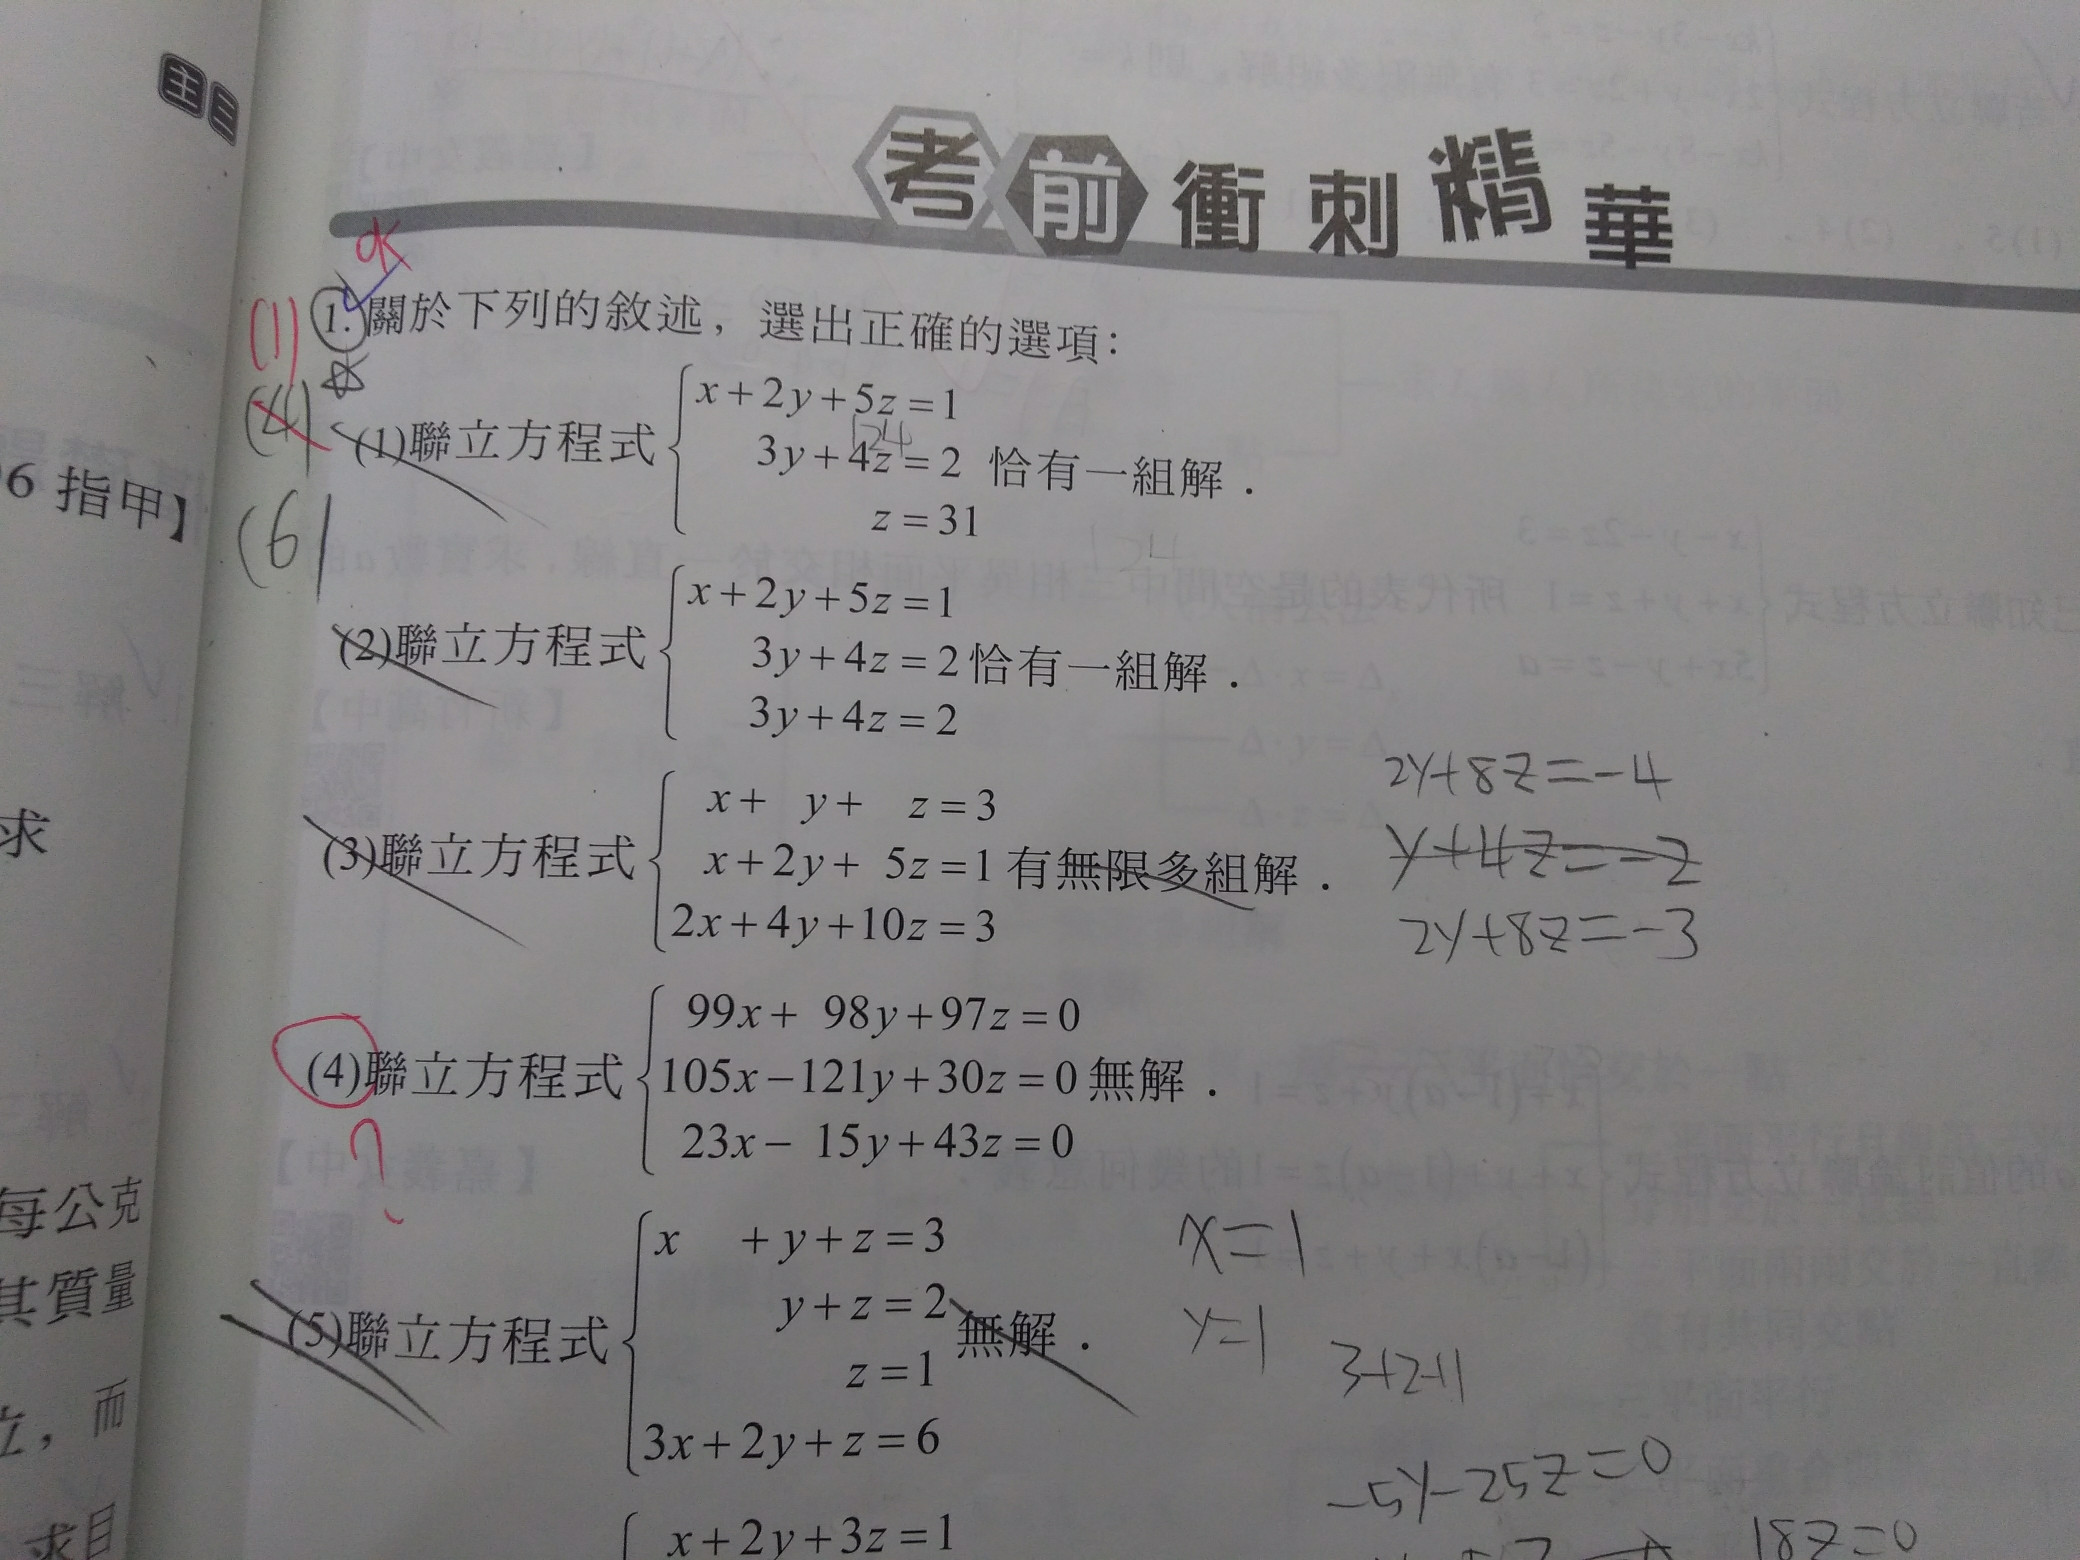 主
三
考前衝刺精華
ok
(1)
1.關於下列的敘述，選出正確的選項：
(4)
(6)
x+2y+5z=1
(1)聯立方程式 3y+4z=2 恰有一組解．
z=31
124
x+2y+5z=1
(2)聯立方程式 3y+4z=2恰有一組解．
3y+4z=2
x+ y+ z=3
(3)聯立方程式 x+2y+ 5z=1有無限多組解．
2x+4y+10z=3
2y+8z=-4
y+4z=-2
2y+8z=-3
99x+ 98y+97z=0
(4)聯立方程式 105x-121y+30z=0無解．
23x- 15y+43z=0
?
x +y+z=3
y+z=2
(5)聯立方程式 無解．
z=1
3x+2y+z=6
x=1
y=1
3+2+1
-5y-25z=0
18z=0
x+2y+3z=1
6 指甲】
求
每公克
其質量
立，而
求目